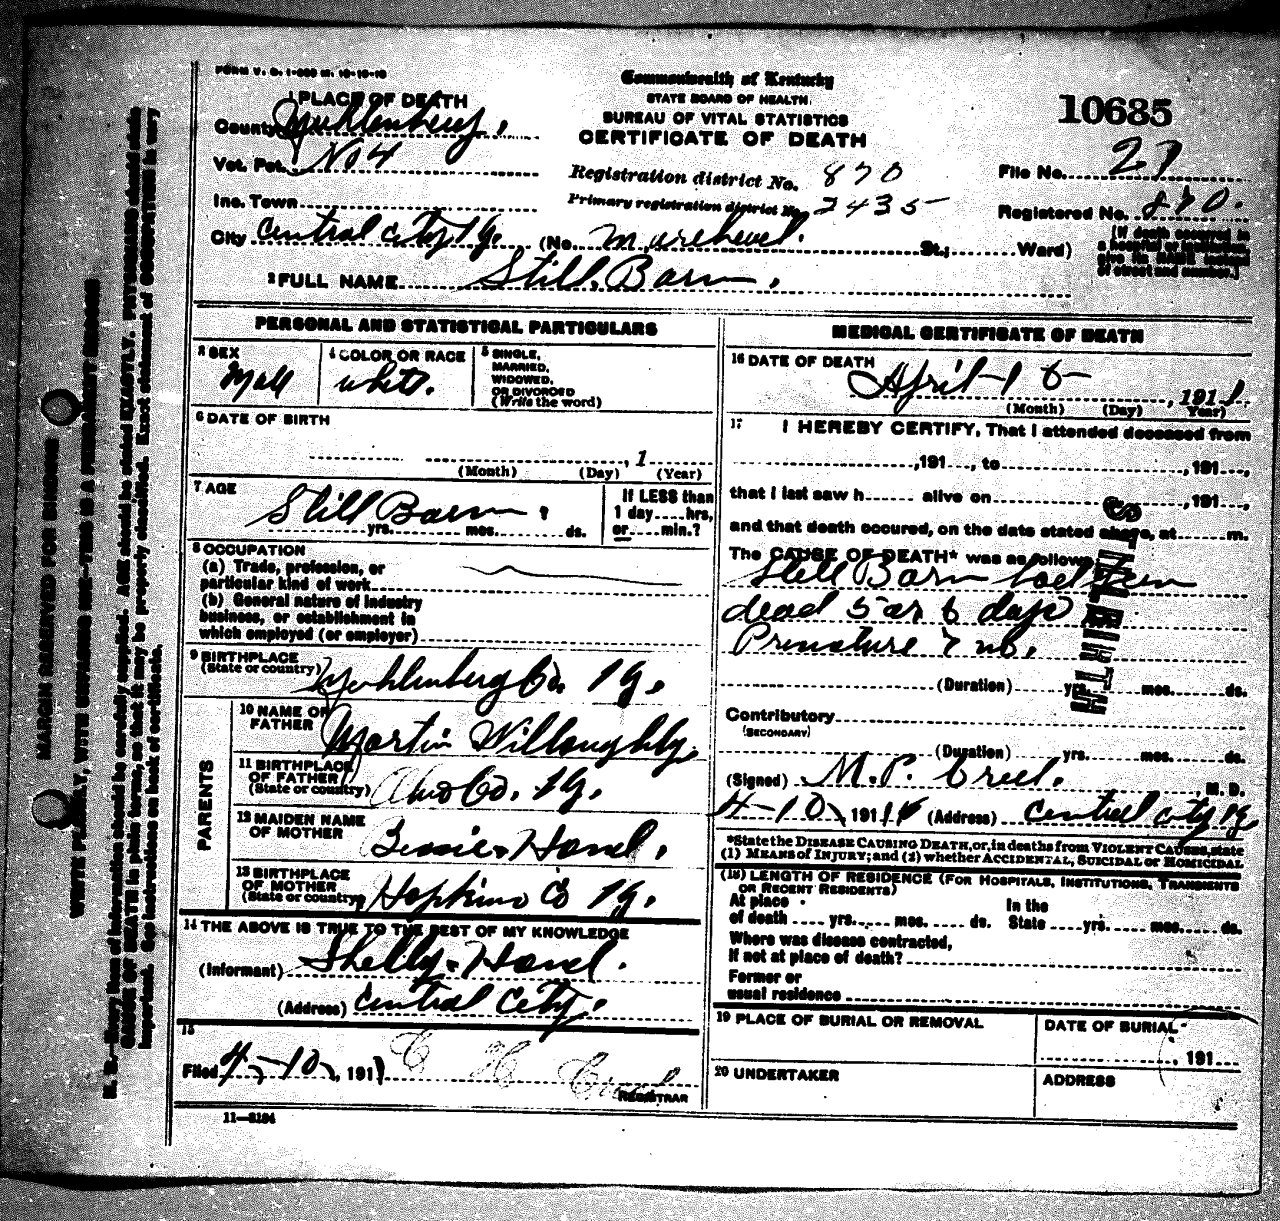 FORM V. S. 1-
Commonwealth of Kentucky
STATE BOARD OF HEALTH.
BUREAU OF VITAL STATISTICS
CERTIFICATE OF DEATH
10685
1 PLACE OF DEATH
County Muhlenberg.
Vot. Pct. No 4
Inc. Town
City Central City Ky. (No. St.; Ward)
Registration district No. 870
Primary registration district No. 2435
File No. 27
Registered No. 270.
[If death occurred in a hospital or institution, give its NAME instead of street and number.]
2 FULL NAME Still. Barn.
PERSONAL AND STATISTICAL PARTICULARS
3 SEX Mall
4 COLOR OR RACE white.
5 SINGLE, MARRIED, WIDOWED, OR DIVORCED (Write the word)
6 DATE OF BIRTH
, 1
(Month) (Day) (Year)
7 AGE Still Barn.
yrs. mos. ds.
If LESS than 1 day hrs, or min.?
8 OCCUPATION
(a) Trade, profession, or particular kind of work
(b) General nature of industry business, or establishment in which employed (or employer)
9 BIRTHPLACE (State or country) Muhlenberg Co. Ky.
PARENTS
10 NAME OF FATHER Martin Willoughby
11 BIRTHPLACE OF FATHER (State or country) Ohio Co. Ky.
12 MAIDEN NAME OF MOTHER
13 BIRTHPLACE OF MOTHER (State or country) Hopkins Co Ky.
14 THE ABOVE IS TRUE TO THE BEST OF MY KNOWLEDGE
(Informant) Shelly.
(Address) Central City.
15
Filed 4-10, 1911 Creel
REGISTRAR
11—3184
MEDICAL CERTIFICATE OF DEATH
16 DATE OF DEATH April , 1911
(Month) (Day) Year)
17 I HEREBY CERTIFY, That I attended deceased from
,191 , to ,191 ,
that I last saw h alive on ,191 ,
and that death occured, on the date stated above, at m.
The CAUSE OF DEATH* was as follows
Still Barn had been
dead 5 or 6 days
Primature 7 mo.
STILLBIRTHS
(Duration) yrs. mos. ds.
Contributory
(SECONDARY)
(Duration) yrs. mos. ds.
(Signed) M.P. Creel. , M. D.
4-10 191 (Address) Central City Ky
*State the DISEASE CAUSING DEATH, or, in deaths from VIOLENT CAUSES, state
(1) MEANS OF INJURY; and (2) whether ACCIDENTAL, SUICIDAL or HOMICIDAL
(18) LENGTH OF RESIDENCE (FOR HOSPITALS, INSTITUTIONS, TRANSIENTS OR RECENT RESIDENTS)
At place of death yrs. mos. ds. In the State yrs. mos. ds.
Where was disease contracted,
if not at place of death?
Former or
usual residence
19 PLACE OF BURIAL OR REMOVAL
DATE OF BURIAL
, 191
20 UNDERTAKER
ADDRESS
MARGIN RESERVED FOR BINDING
WRITE PLAINLY, WITH UNFADING INK—THIS IS A PERMANENT RECORD
N. B.—Every item of information should be carefully supplied. AGE should be stated EXACTLY. PHYSICIANS should state
CAUSE OF DEATH in plain terms, so that it may be properly classified. Exact statement of OCCUPATION is very
important. See instructions on back of certificate.